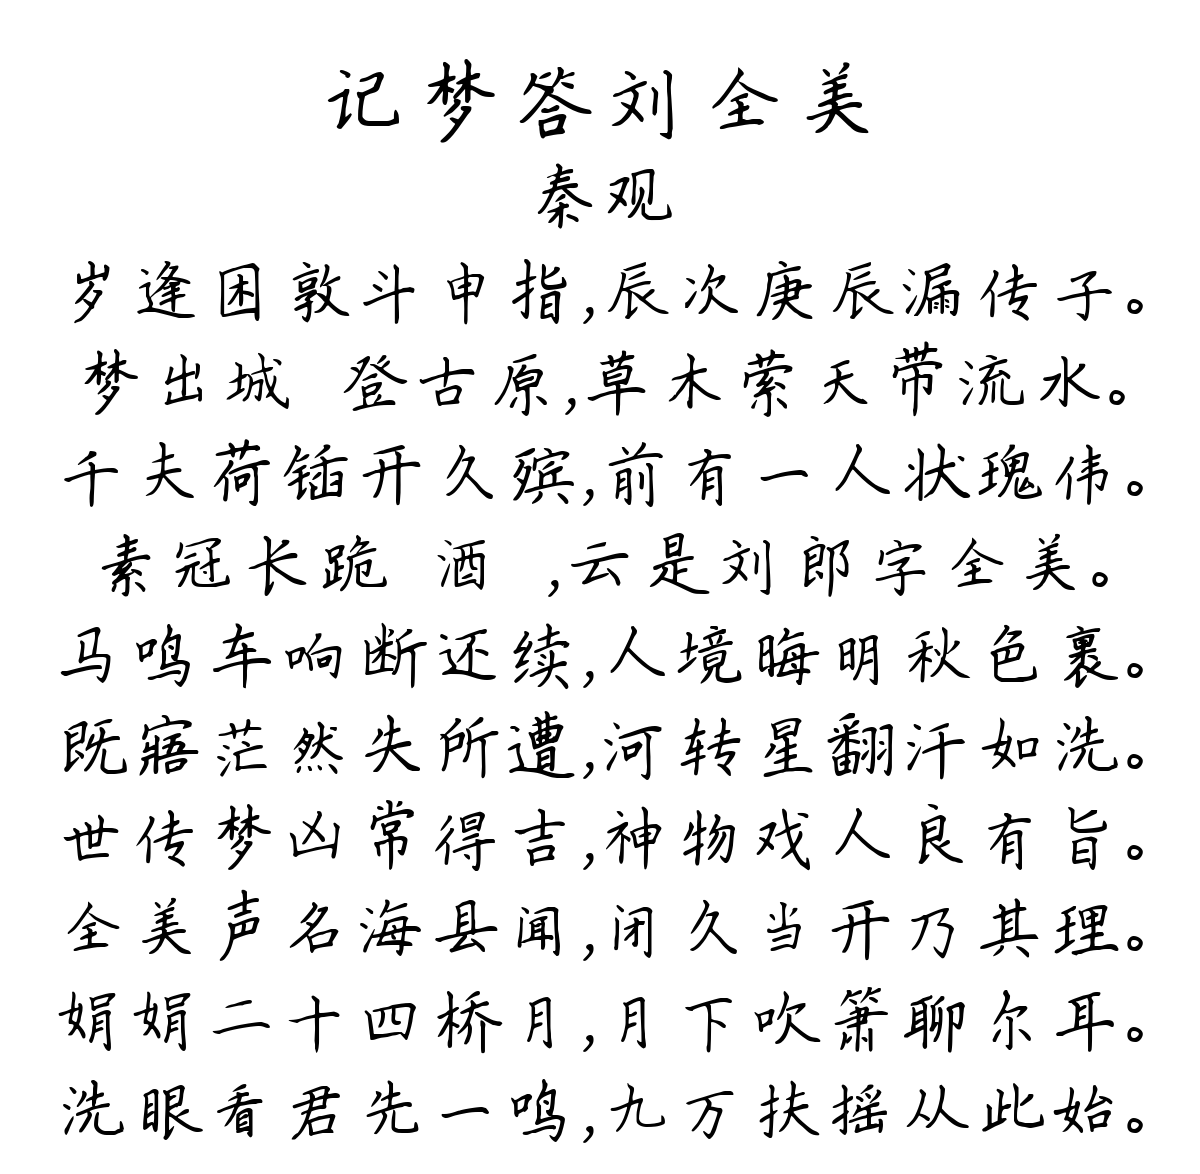 记梦答刘全美
秦观
岁逢困敦斗申指,辰次庚辰漏传子。
梦出城 登古原,草木萦天带流水。
千夫荷锸开久殡,前有一人状瑰伟。
素冠长跪 酒 ,云是刘郎字全美。
马鸣车响断还续,人境晦明秋色裹。
既寤茫然失所遭,河转星翻汗如洗。
世传梦凶常得吉,神物戏人良有旨。
全美声名海县闻,闭久当开乃其理。
娟娟二十四桥月,月下吹箫聊尔耳。
洗眼看君先一鸣,九万扶摇从此始。